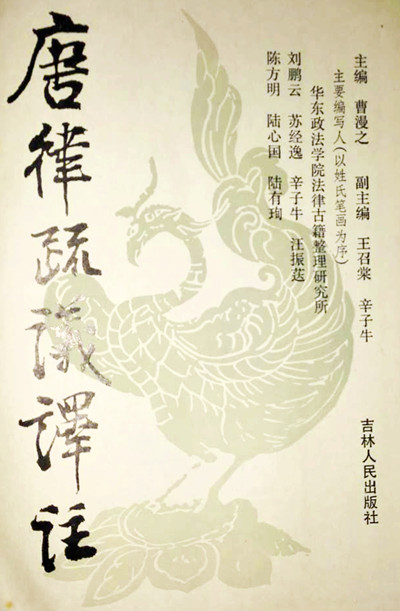 唐律疏議譯註
主编 曹漫之 副主编 王召棠 辛子牛
主要编写人(以姓氏笔画为序)
华东政法学院法律古籍整理研究所
刘鹏云 苏经逸 辛子牛 汪振荭
陈方明 陆心国 陆有珣
吉林人民出版社